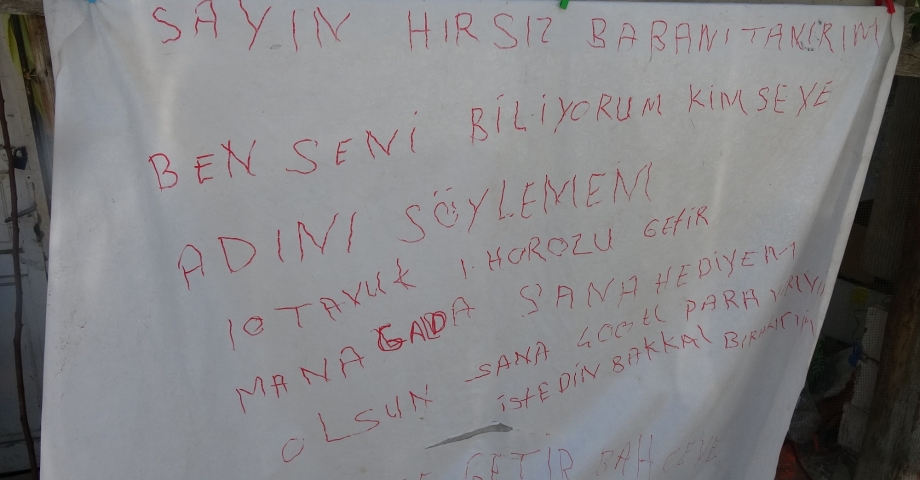 SAYIN HIRSIZ BABANI TANIRIM
BEN SENİ BİLİYORUM KİMSEYE
ADINI SÖYLEMEM
10 TAVUK 1. HOROZU GETİR
MANAGADA SANA HEDİYEM
OLSUN SANA 400 tl PARA
İSTEDİN BAKKAL
GETİR BAHCEYE